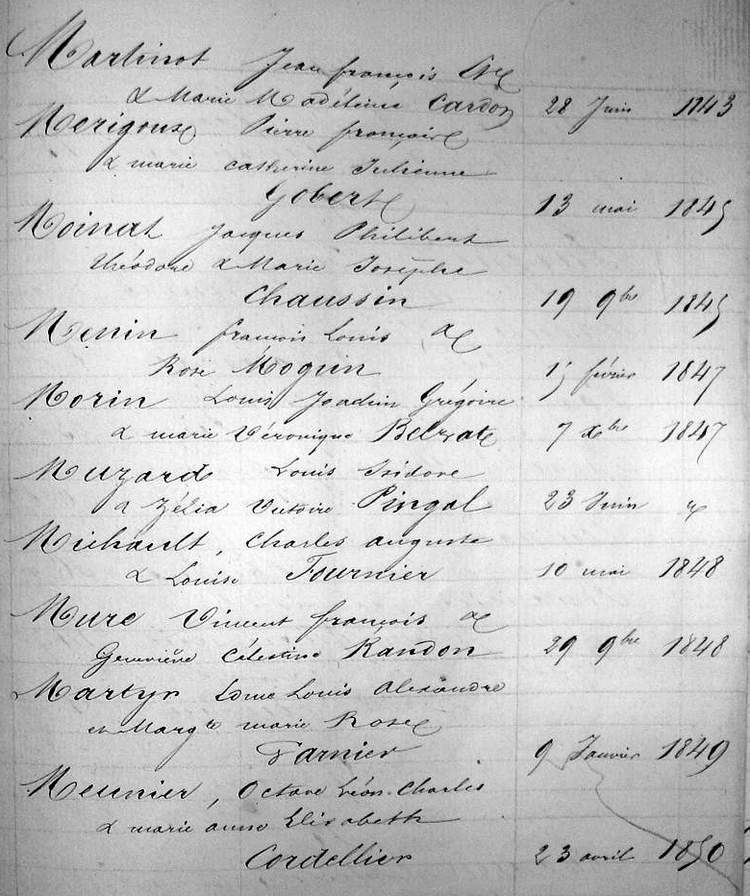 Martinot Jean françois
& Marie Madéleine Cardon 28 Juin 1843
Merigoux Pierre françois
& marie catherine Julienne
Gobert 13 mai 1845
Moinat Jacques Philibert
théodore & Marie Josèphe
Chaussin 19 9bre 1845
Menin francois Louis &
Rose Moguin 15 février 1847
Morin Louis Joachim Grégoire
& marie Véronique 7 Xbre 1847
Muzard Louis Isidore
& Zélia Victoire Pingal 23 Juin
Michault, Charles auguste
& Louise Fournier 10 mai 1848
Mure Vincent françois &
Geneviève Célestine Randon 29 9bre 1848
Martyr Louis Alexandre
et Margte marie Rose
Farnier 9 Janvier 1849
Meunier, Octave Léon Charles
& marie anne Elisabeth
Cordellier 23 avril 1850